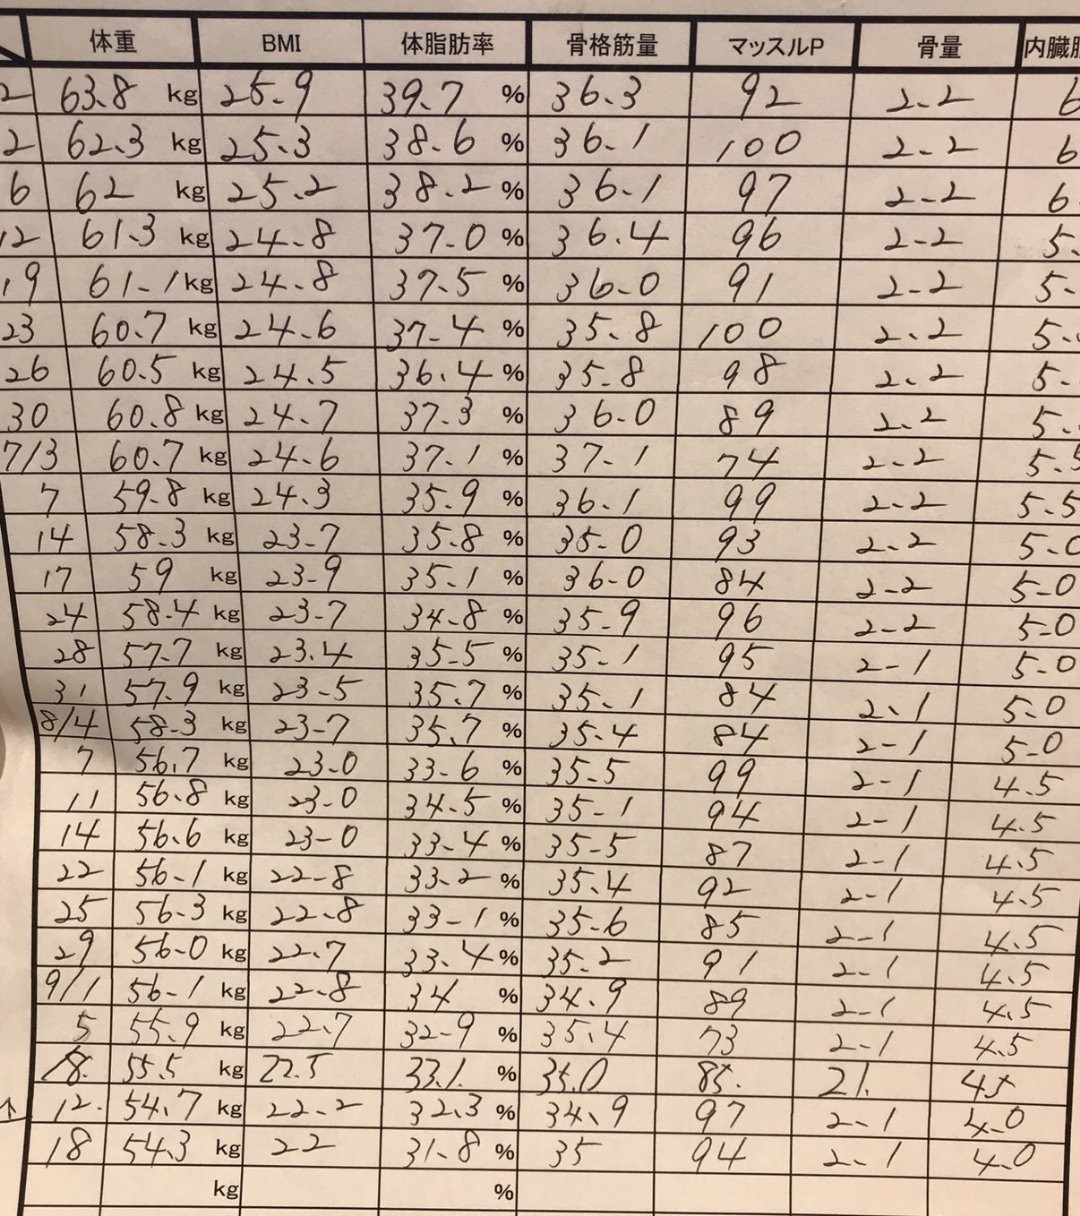 体重 BMI 体脂肪率 骨格筋量 マッスルP 骨量 内臓脂
2 63.8 kg 25.9 39.7 % 36.3 92 2.2 6
2 62.3 kg 25.3 38.6 % 36.1 100 2.2 6
6 62 kg 25.2 38.2 % 36.1 97 2.2 6.
12 61.3 kg 24.8 37.0 % 36.4 96 2.2 5.
19 61.1 kg 24.8 37.5 % 36.0 91 2.2 5.
23 60.7 kg 24.6 37.4 % 35.8 100 2.2 5.
26 60.5 kg 24.5 36.4 % 35.8 98 2.2 5.
30 60.8 kg 24.7 37.3 % 36.0 89 2.2 5.
7/3 60.7 kg 24.6 37.1 % 37.1 74 2.2 5.5
7 59.8 kg 24.3 35.9 % 36.1 99 2.2 5.5
14 58.3 kg 23.7 35.8 % 35.0 93 2.2 5.0
17 59 kg 23.9 35.1 % 36.0 84 2.2 5.0
24 58.4 kg 23.7 34.8 % 35.9 96 2.2 5.0
28 57.7 kg 23.4 35.5 % 35.1 95 2.1 5.0
31 57.9 kg 23.5 35.7 % 35.1 84 2.1 5.0
8/4 58.3 kg 23.7 35.7 % 35.4 84 2.1 5.0
7 56.7 kg 23.0 33.6 % 35.5 99 2.1 4.5
11 56.8 kg 23.0 34.5 % 35.1 94 2.1 4.5
14 56.6 kg 23.0 33.4 % 35.5 87 2.1 4.5
22 56.1 kg 22.8 33.2 % 35.4 92 2.1 4.5
25 56.3 kg 22.8 33.1 % 35.6 85 2.1 4.5
29 56.0 kg 22.7 33.4 % 35.2 91 2.1 4.5
9/1 56.1 kg 22.8 34 % 34.9 89 2.1 4.5
5 55.9 kg 22.7 32.9 % 35.4 73 2.1 4.5
8. 55.5 kg 22.5 33.1. % 35.0 85. 21. 45
12. 54.7 kg 22.2 32.3 % 34.9 97 2.1 4.0
18 54.3 kg 22 31.8 % 35 94 2.1 4.0
kg %